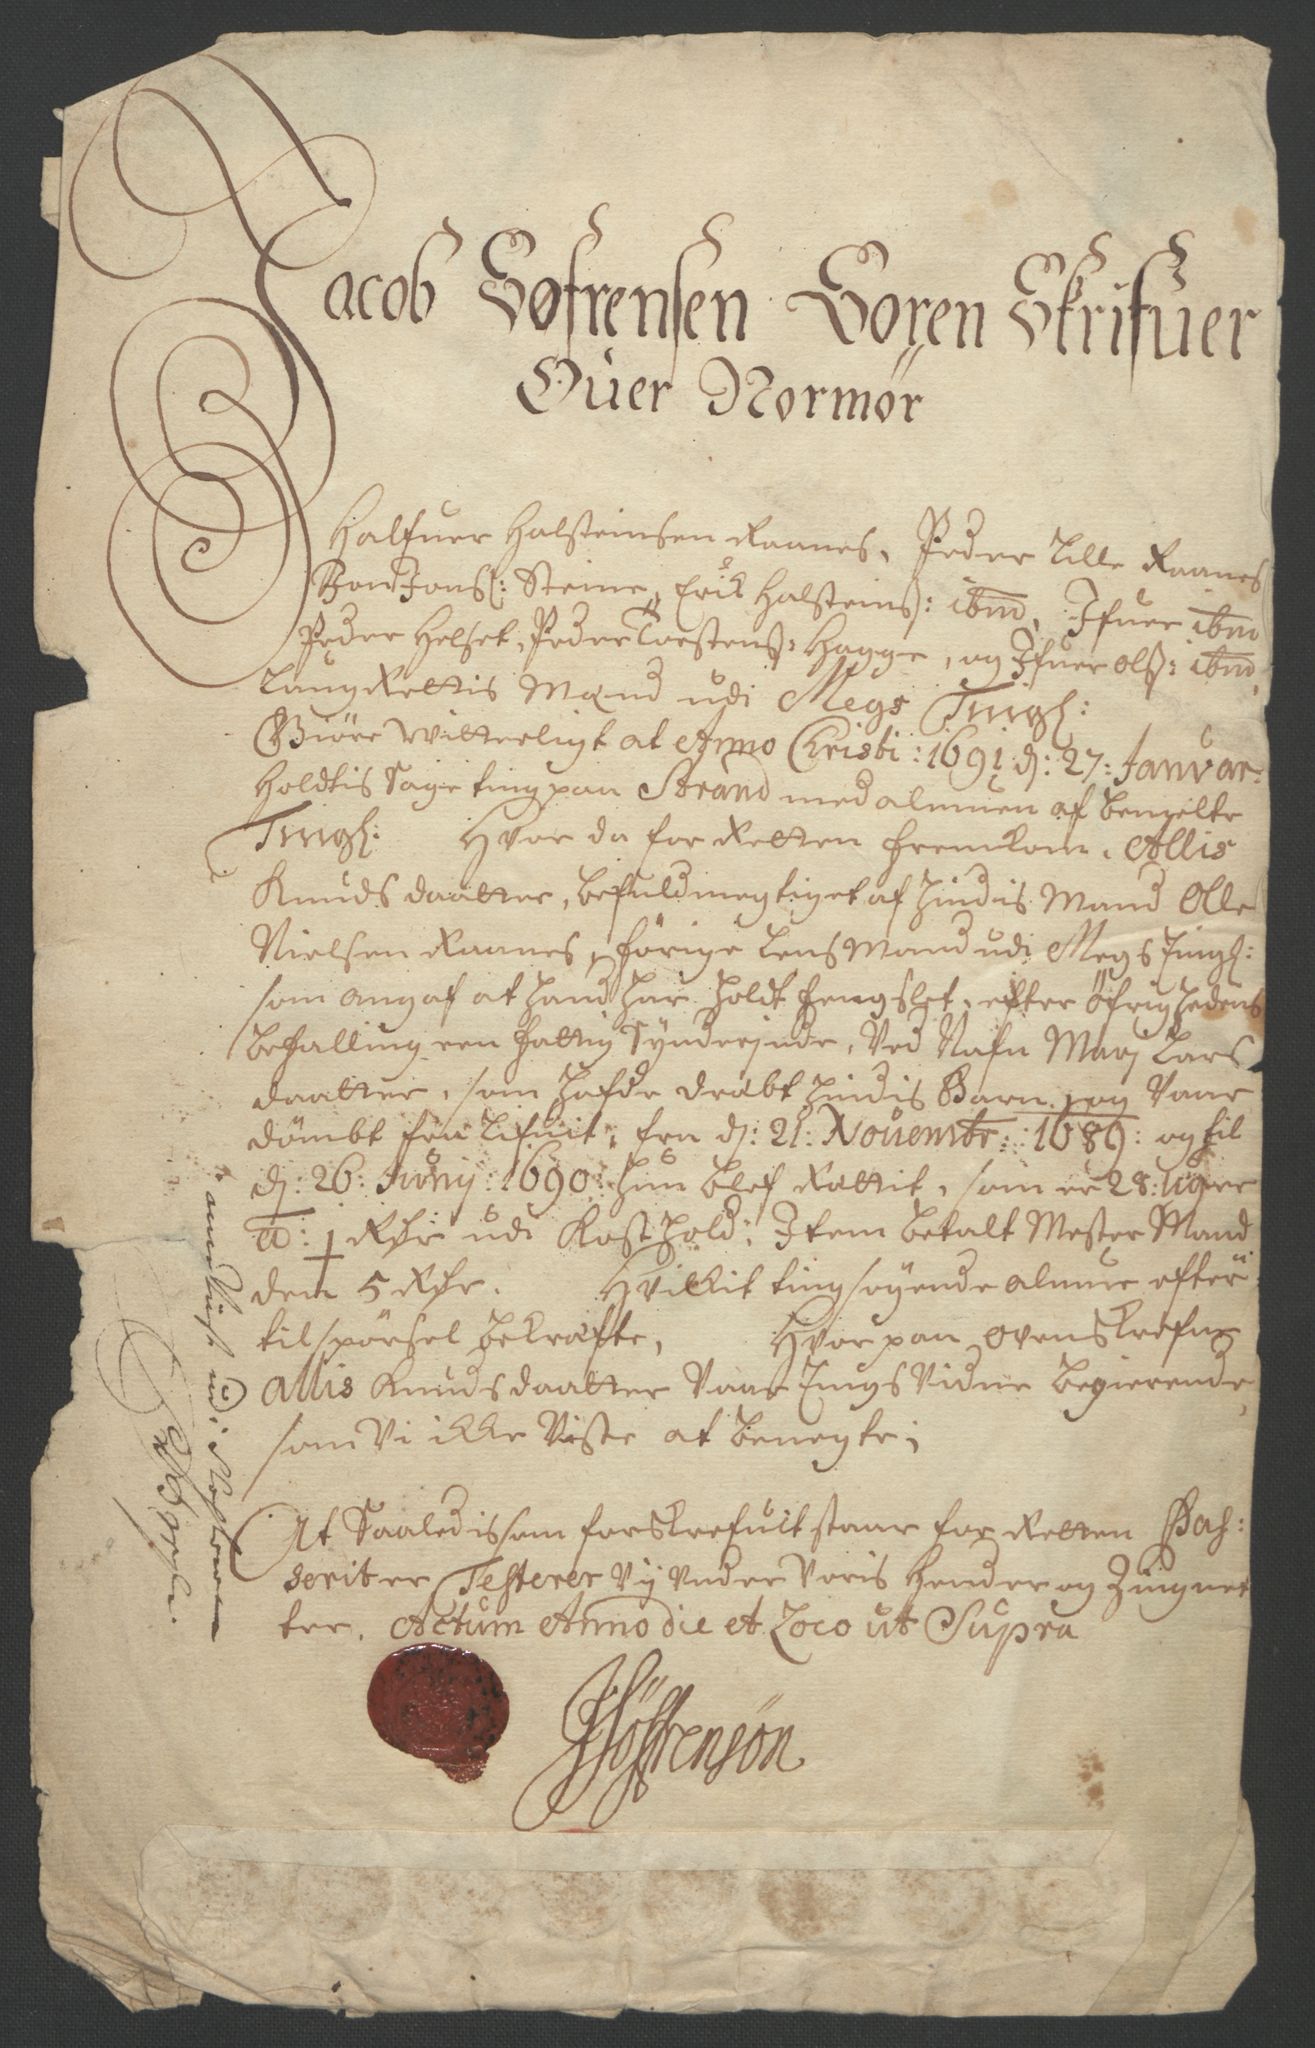 Jacob Søfrensen Soren Skrifuer
Ofuer Normør
Halfuer Halsteinsen Raanes, Peder Lille Raanes
Jonsß: Steine, Erik Halsteinß: ibm, Ifuer ibm
Peder Helset, Peder Torstensß: Hagge, og Ifuer Olß: ibm,
LaugRettis Mænd udi Megs Tingl:
Giöre witterligt at Anno Christi: 1691 d: 27: Januar:
Holdtis Sage ting paa Strand med almuen af bemelte
Tingl: Hvor da for Retten fremkom, Allis
Knuds daatter, befuldmegtiget af hindis Mand Olle
Nielsen Raanes, förige Lensmand udi Megs Tingl:
som angaf at hand har holdt fengslet, efter öfrighedens
befalling een fattig Synderinde, Ved Nafn Marj Lars
daatter, som hafde dræbt hindis Barn, og Vaar
dömbt fra Lifuit, fra d: 21: Nouembr: 1689: og til
d: 26: Junij: 1690: hun blef Rettit, som er 28: uger
a: 1 Rdr udi Kosthold; Item betalt Mester Mand
dem 5 Rdr. Hvilkit tingsøgende almue efter
tilspörsel bekræfte, Hvorpaa ovenskrefne
Allis Knudsdaatter Vaar Tings Vidne begierende,
som Vi ikke Viste at benegte;
At Saaledis som forskrefuit staar for Retten Pas:
serit er Testerer Vj under Voris Hender og Zigner
ter. Actum Anno die et Loco ut Supra
JSöffrensön